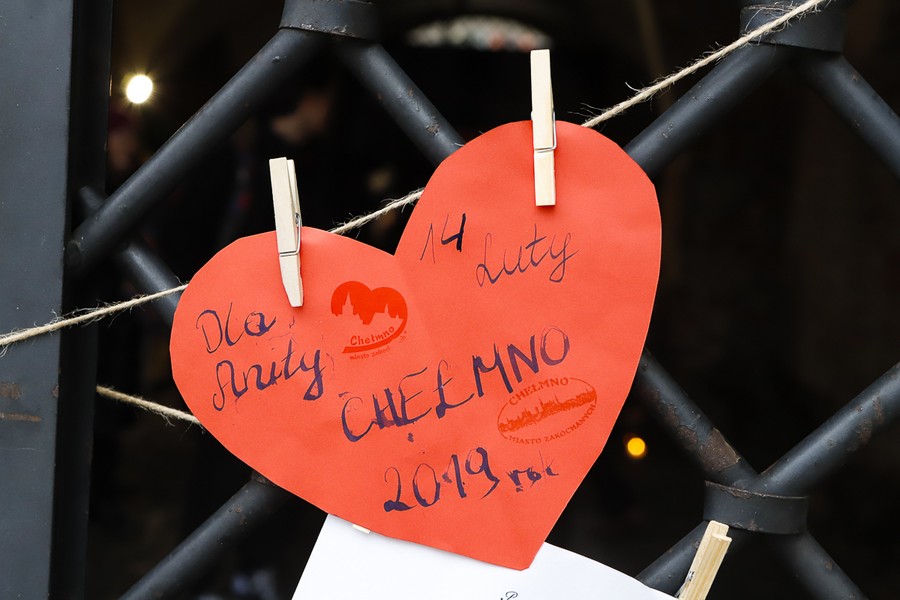 14
Luty
Dla
Anity
Chełmno
CHEŁMNO
CHEŁMNO
MIASTO ZAKOCHANYCH
2019 rok